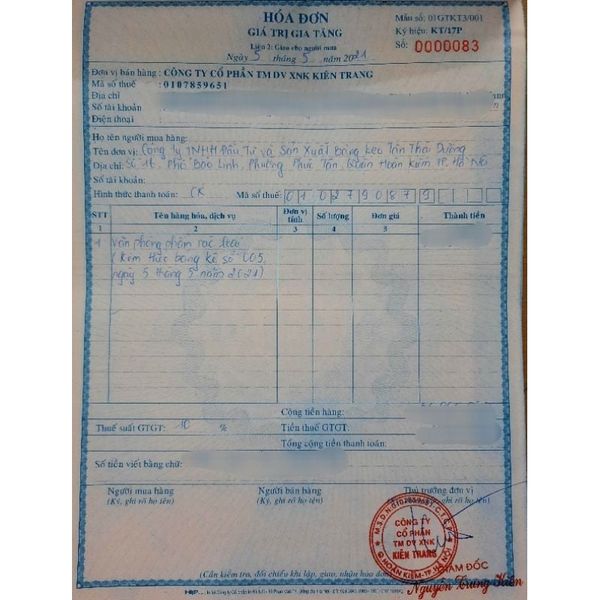 HÓA ĐƠN
GIÁ TRỊ GIA TĂNG
Liên 2: Giao cho người mua
Ngày 5 tháng 5 năm 2021
Mẫu số: 01GTKT3/001
Ký hiệu: KT/17P
Số: 0000083
Đơn vị bán hàng : CÔNG TY CỔ PHẦN TM DV XNK KIÊN TRANG
Mã số thuế : 0107859651
Địa chỉ
Số tài khoản
Điện thoại
Họ tên người mua hàng:
Tên đơn vị: Công ty TNHH Đầu Tư và Sản Xuất Băng keo Tân Thái Dương
Địa chỉ: Số 16, Phố Bảo Linh, Phường Phúc Tân, Quận Hoàn Kiếm TP. Hà Nội
Số tài khoản:
Hình thức thanh toán: CK Mã số thuế: 0102790879
STT Tên hàng hóa, dịch vụ Đơn vị tính Số lượng Đơn giá Thành tiền
1 2 3 4 5
1 Văn phòng phẩm các loại
(Kèm theo bảng kê số 005,
ngày 5 tháng 5 năm 2021)
Cộng tiền hàng:
Thuế suất GTGT: 10 % Tiền thuế GTGT:
Tổng cộng tiền thanh toán:
Số tiền viết bằng chữ:
Người mua hàng Người bán hàng Thủ trưởng đơn vị
(Ký, ghi rõ họ tên) (Ký, ghi rõ họ tên) (Ký, ghi rõ họ tên)
M.S.D.N:0107859651-C.T.C.P
CÔNG TY
CỔ PHẦN
TM DV XNK
KIÊN TRANG
Q.HOÀN KIẾM-TP.HÀ NỘI
GIÁM ĐỐC
Nguyễn Trung Kiên
(Cần kiểm tra, đối chiếu khi lập, giao, nhận hóa đơn)